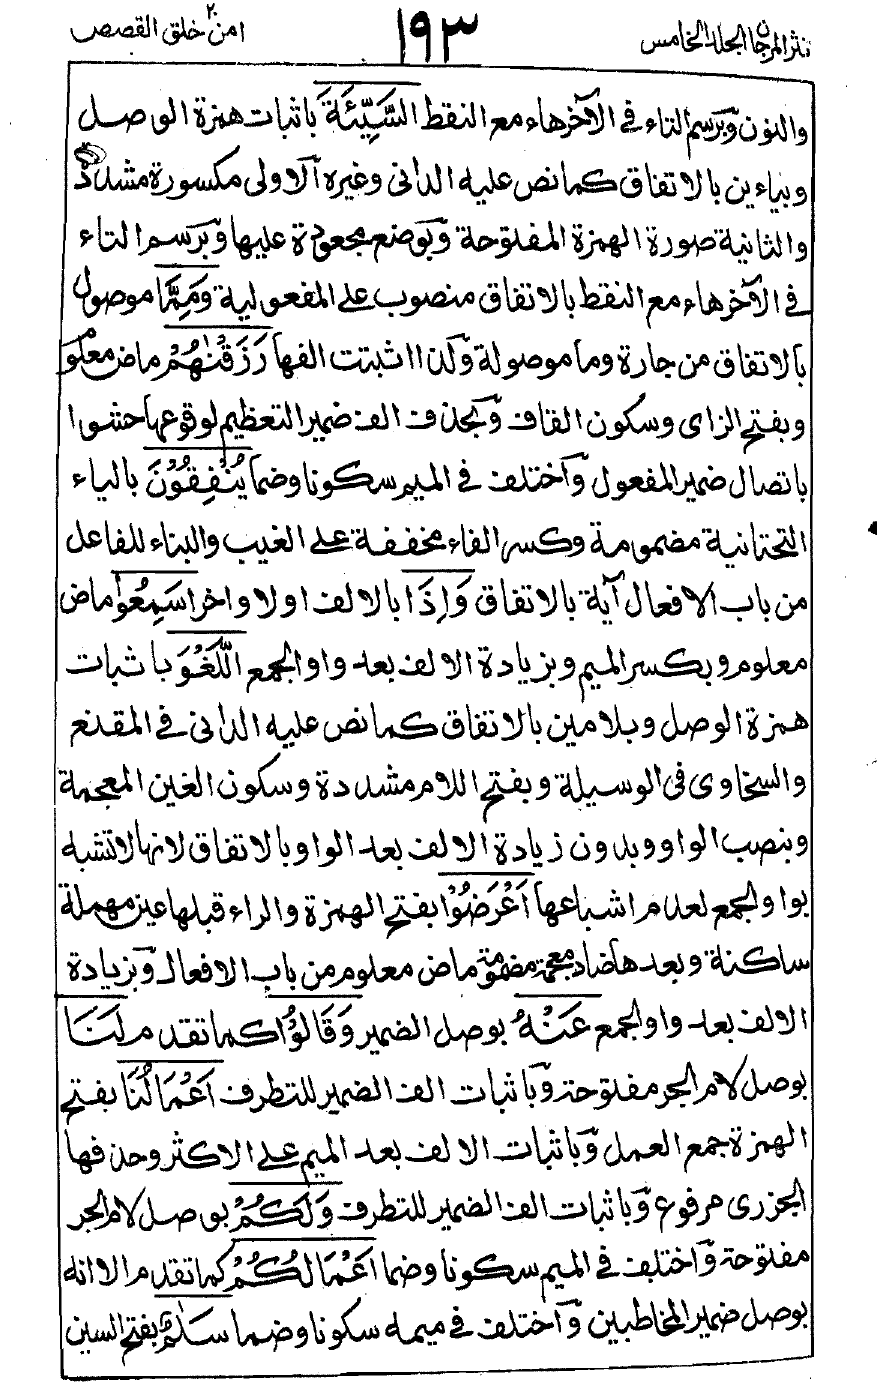 نثر المرجان الجلد الخامس ١٩٣ امن خلق ٢٠ القصص
والنون وبرسم التاء فى الآخر هاء مع النقط السَّيِّئَةَ باثبات همزة الوصل
وبياءين بالاتفاق كما نص عليه الدانى وغيره الاولى مكسورة مشددة
والثانية صورة الهمزة المفتوحة وبوضع مجعودة عليها وبرسم التاء
فى الآخر هاء مع النقط بالاتفاق منصوب على المفعولية وَمِمَّا موصول
بالاتفاق من جارة وما موصولة ولذا اثبتت الفها رَزَقْنٰهُمْ ماض معلوم
وبفتح الزاى وسكون القاف وبحذف الف ضمير التعظيم لوقوعها حشوا
باتصال ضمير المفعول واختلف فى الميم سكونا وضما يُنْفِقُوْنَ بالياء
التحتانية مضمومة وكسر الفاء مخففة على الغيب والبناء للفاعل
من باب الافعال آية بالاتفاق وَاِذَا بالالف اولا واخرا سَمِعُوا ماض
معلوم وبكسر الميم وبزيادة الالف بعد واو الجمع اللَّغْوَ باثبات
همزة الوصل وبلامين بالاتفاق كما نص عليه الدانى فى المقنع
والسخاوى فى الوسيلة وبفتح اللام مشددة وسكون الغين المعجمة
وبنصب الواو وبدون زيادة الالف بعد الواو بالاتفاق لانها لا تشبه
بواو الجمع لعدم اشباعها اَعْرَضُوْا بفتح الهمزة والراء قبلها عين مهملة
ساكنة وبعدها ضاد معجمة مضمومة ماض معلوم من باب الافعال وبزيادة
الالف بعد واو الجمع عَنْهُ بوصل الضمير وَقَالُوْا كما تقدم لَنَا
بوصل لام الجر مفتوحة وباثبات الف الضمير للتطرف اَعْمَالُنَا بفتح
الهمزة جمع العمل وباثبات الالف بعد الميم على الاكثر وحذفها
الجزرى مرفوع وباثبات الف الضمير للتطرف وَلَكُمْ بوصل لام الجر
مفتوحة واختلف فى الميم سكونا وضما اَعْمَالُكُمْ كما تقدم الا انه
بوصل ضمير المخاطبين واختلف فى ميمه سكونا وضما سَلٰمٌ بفتح السين